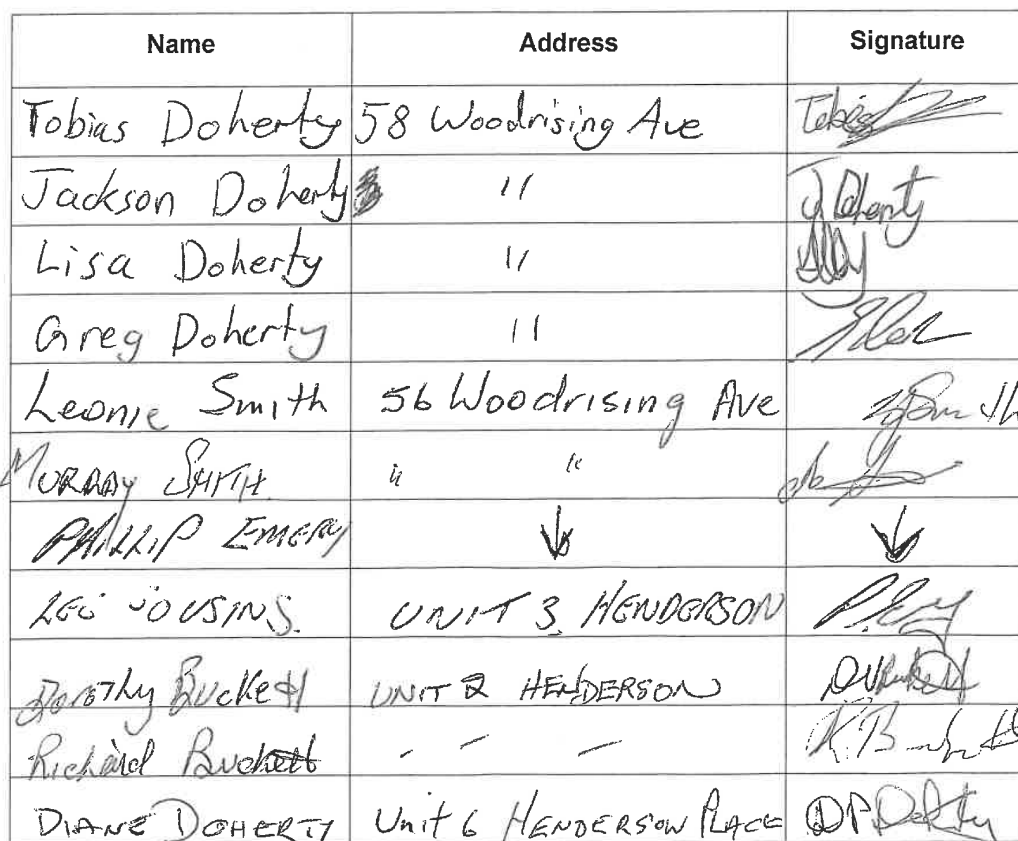 Name Address Signature
Tobias Doherty 58 Woodrising Ave Tobias
Jackson Doherty " J Doherty
Lisa Doherty "
Greg Doherty "
Leonie Smith 56 Woodrising Ave Smith
MURRAY SMITH " "
PHILLIP EMERY ↓ ↓
LEO COUSINS. UNIT 3 HENDERSON
Dorothy Buckett UNIT 2 HENDERSON
Richard Buckett - - -
DIANE DOHERTY Unit 6 HENDERSON PLACE DP Doherty